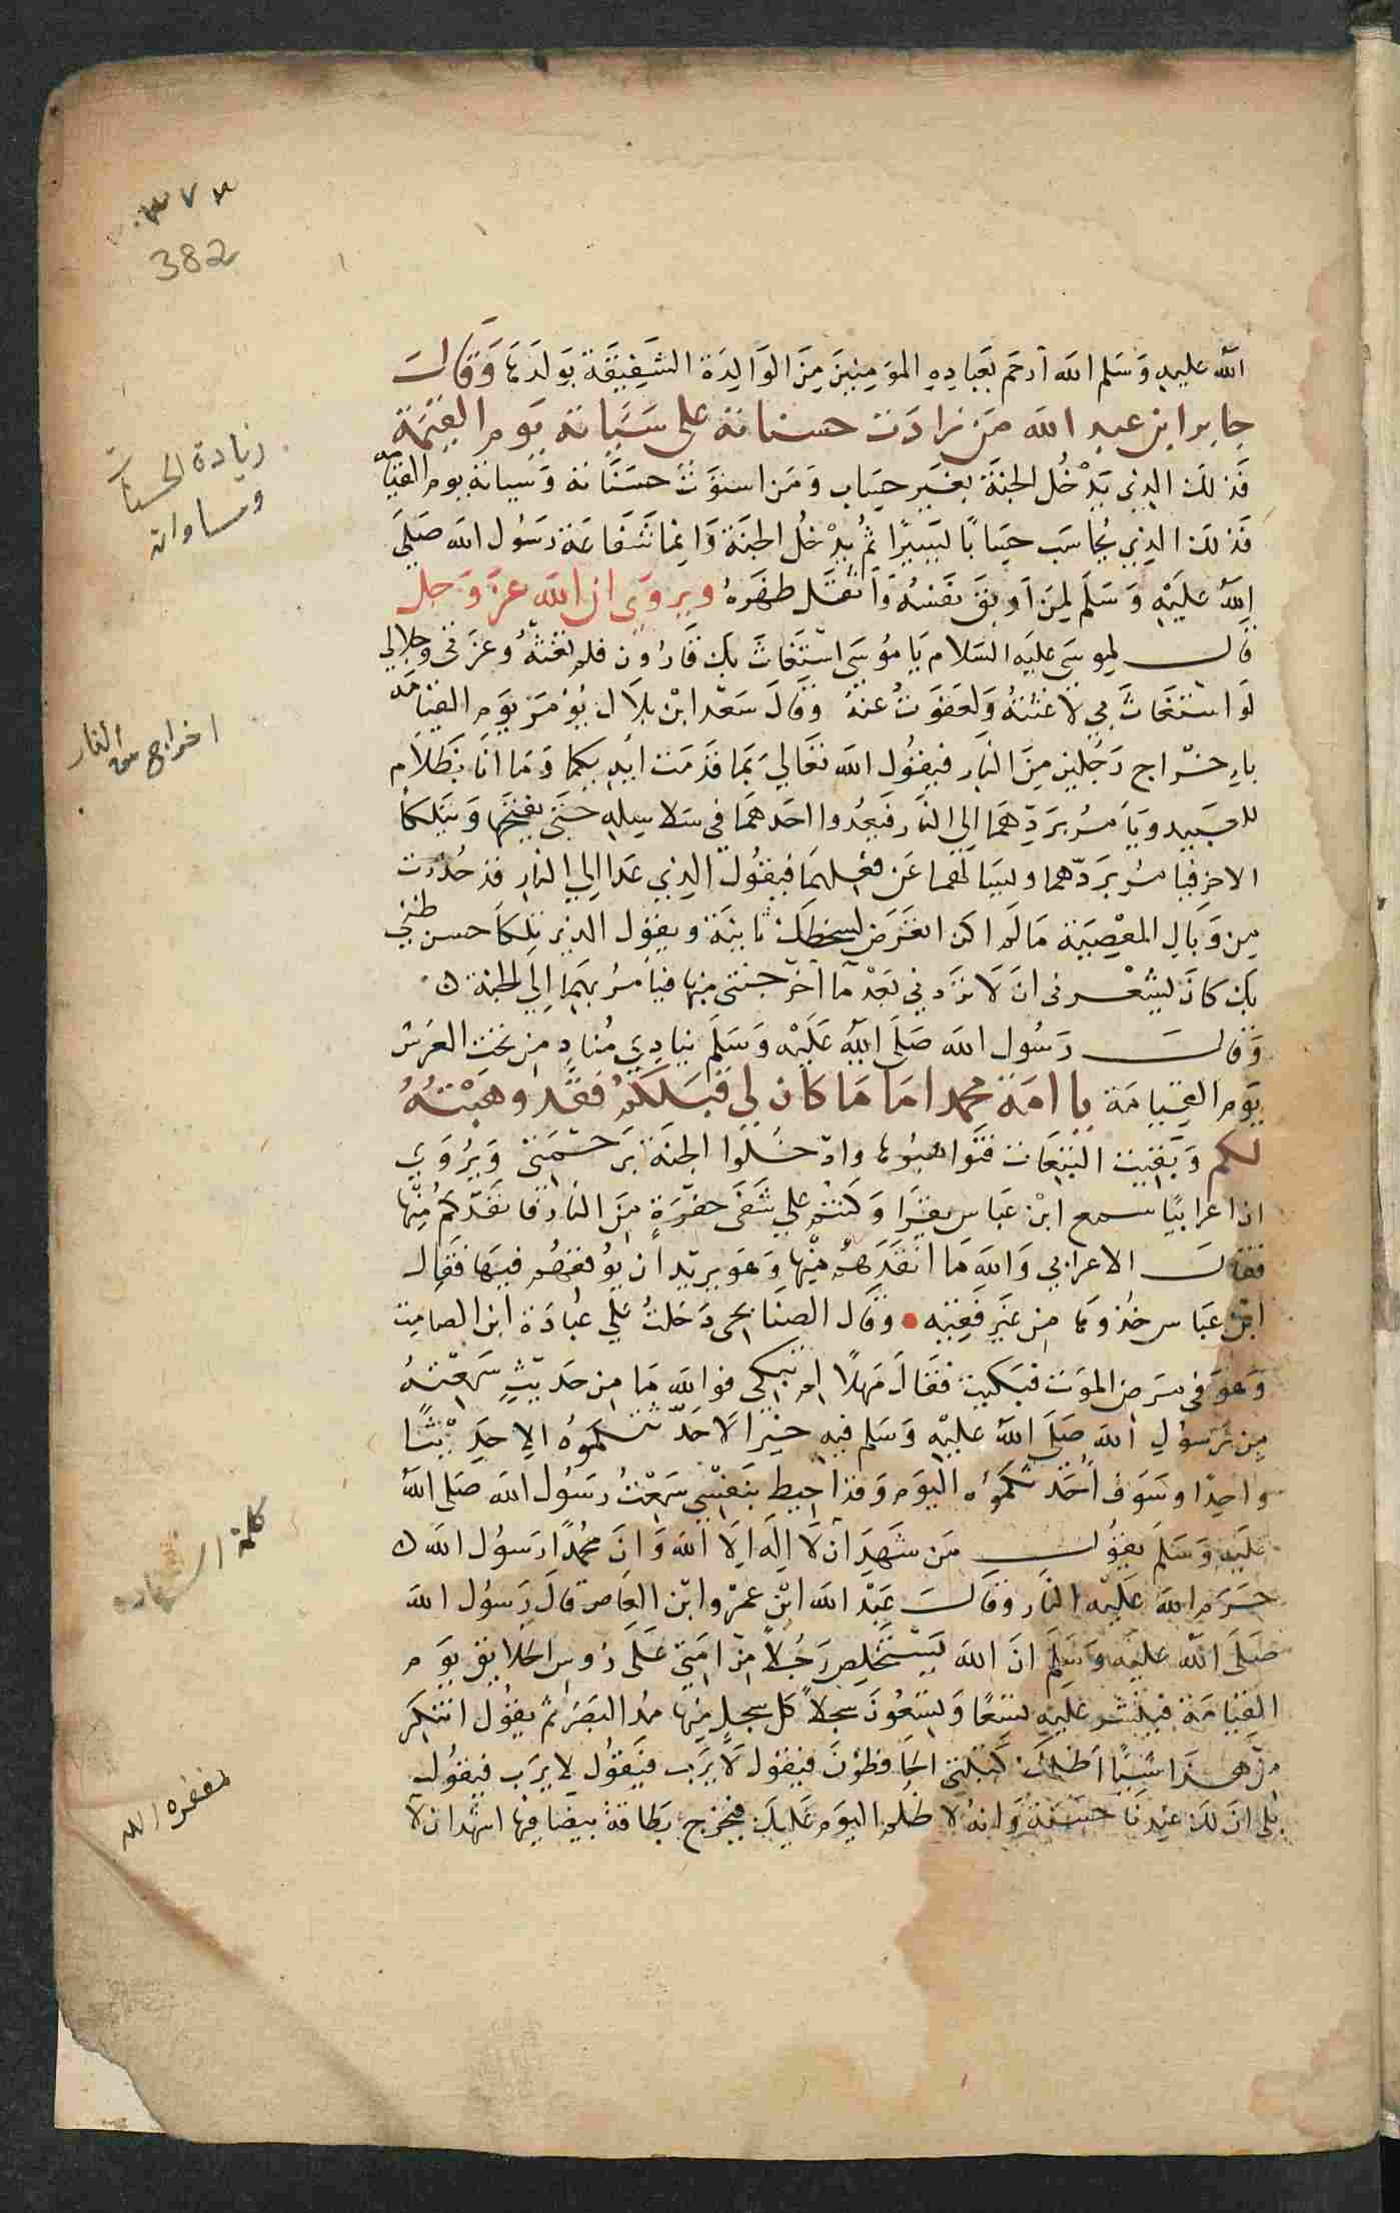 ٣٧٣
382
الله عليه وَسَلم الله أرحَم بعَبادِهِ المومِنينَ مِنَ الوَالِدَة الشَفِيقَة بوَلَدَهَا وَقالت
جابر ابن عبد الله مَن زادَت حسناته على سَيَاته يَوم القِيمَة
فَذلك الذي يَدْخُل الجنَة بغَير حِسَاب وَمَن استوَت حسَنَاته وَسَياته يوم القيامه
فَذلكَ الذِي يُحاسَب حسَابًا يَسِيرًا ثُم يدْخلُ الجنَة وَانما شَفاعَة رَسُول الله صَلى
اللهُ عَليْهِ وَسَلَم لمِن اَوبَق نَفسَهُ وَاَثقَل ظهَرَهُ ويروَى ان الله عزَ وَجل
قال لموسَى عليَه السَلام يَا مُوسَى استَغاثَ بك قارُون فلم تغثهُ وعزَتى وجلالي
لَو استغَاثَ بي لاغثتهُ وَلعَفوَتُ عنهُ وقالَ سَعْد ابْن بلاَل يُؤمَر يَوم القيامَه
باخرَاج رَجُلين مِنَ النار فيقُول الله تعَالي بمَا قدَمَت أيديكما وَمَا انَا بظَلام
للعبيد وَيَأمرُ برَدّهمَا الي النَار فيَعْدُوا احَدهمَا في سَلاسِله حَتى يقتحمها وَيَتلكأ
الاخر فيَامرُ برَدّهما ويسَالهما عَن فعْلهمَا فيقُول الذِي عَدا الي النار قد حُذرت
مِن وَبَالِ المعْصِيَة مَا لَم اكن اتعَرَض لسخطك ثانيَة ويقول الذي تلكأ حسن ظني
بك كانَ يشعْرنى انَ لَا تردني بَعْد مَا اخرَجتنى منها فيَامرُ بهمَا إلي الجنة ه
وَقالَ رَسُول الله صَلَى اللهُ عَلَيْه وَسَلَم يُنادِي مُنادٍ من تحت العَرش
يَوم القِيَامَة يا امَة محمد امَا مَا كان لى قبلكم فقد وهَبْتُهُ
لكم وَبَقيت التبعَات فتَواهبُوها وادْخلُوا الجنَة برَحْمَتى وَيرُوَي
ان اعرابيًا سمع ابْن عَباس يقرَا وَكنتم على شَفَى حفرَةٍ مِنَ النار فانقَذكم مِنها
فقالَ الاعرابي وَاللهِ مَا انقَذَهم مِنها وَهوَ يريد أن يُوقعهُم فيهَا فقال
ابْن عبَاس خذوهَا من غير فَقِيه • وقال الصنَابحى دَخلتُ عَلي عُبادَة ابن الصامِت
وَهوَ في مرض الموَت فبَكيت فقالَ مَهلًا لم تبكى فوالله مَا من حَديثٍ سَمِعْتهُ
مِن رَسوُلِ الله صَلَى اللهُ عليْهِ وَسَلم فيه خيرٌ الا حَدّثتكموُهُ الا حدِيْثًا
وَاحِدًا وسَوف أحَدثكمُوه اليوَم وَقد احِيط بنَفسِي سَمِعْتُ رسُول الله صَلى الله
عَلَيْه وَسَلَم يقوُل مَن شَهِدَ ان لَا اِلَه اِلَا الله وَانَ مُحمدًا رسُول الله ه
حَرم الله عَليْه النار وقالَ عَبْد الله ابْن عمرْو ابْن العَاص قالَ رَسُول الله
صَلَى الله عليْه وَسَلَم انَ الله يَستَخلِص رَجُلاً مِن امَتي عَلَى رُوس الخلايق يَوم
القيَامَة فينشر عَليه تسعًا وَتسْعُونَ سجلاً كل سجل مِنها مد البَصَر ثم يقول اتنكر
مِن هَذا شيئًا اَظلمَك كَتبَتي الحَافظوْن فيقول لا يَرب فيَقوُل لا يرَب فيقولُ
بلى ان لك عندنَا حسَنة وانهُ لا ظلم اليوَم عَليك فيخرج بطاقة بيضا فيها اشهد ان لا
زيادة الحسنات
ومساواته
اخراج من النار
كلمة الشهاده
مغفرة الله